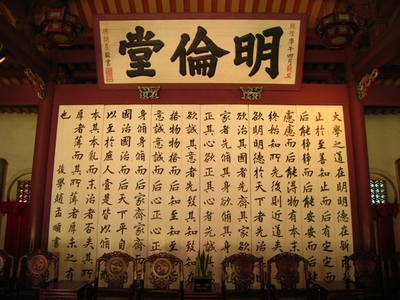 明倫堂
大學之道在明明德在新
止於至善知止而后有定
而后能靜靜而后能安安而
慮慮而后能得物有本末
終始知所先後則近道矣
欲明明德於天下者先治
欲治其國者先齊其家
家者先脩其身欲脩其
正其心欲正其心者先
欲誠其意者先致其知致
格物物格而后知至知至
意誠意誠而后心正心正
身脩身脩而后家齊家齊
國治國治而后天下平自
以至於庶人壹是皆以脩
本其本亂而末治者否矣其所
厚者薄而其所薄者厚未之有
也 後學趙孟頫書